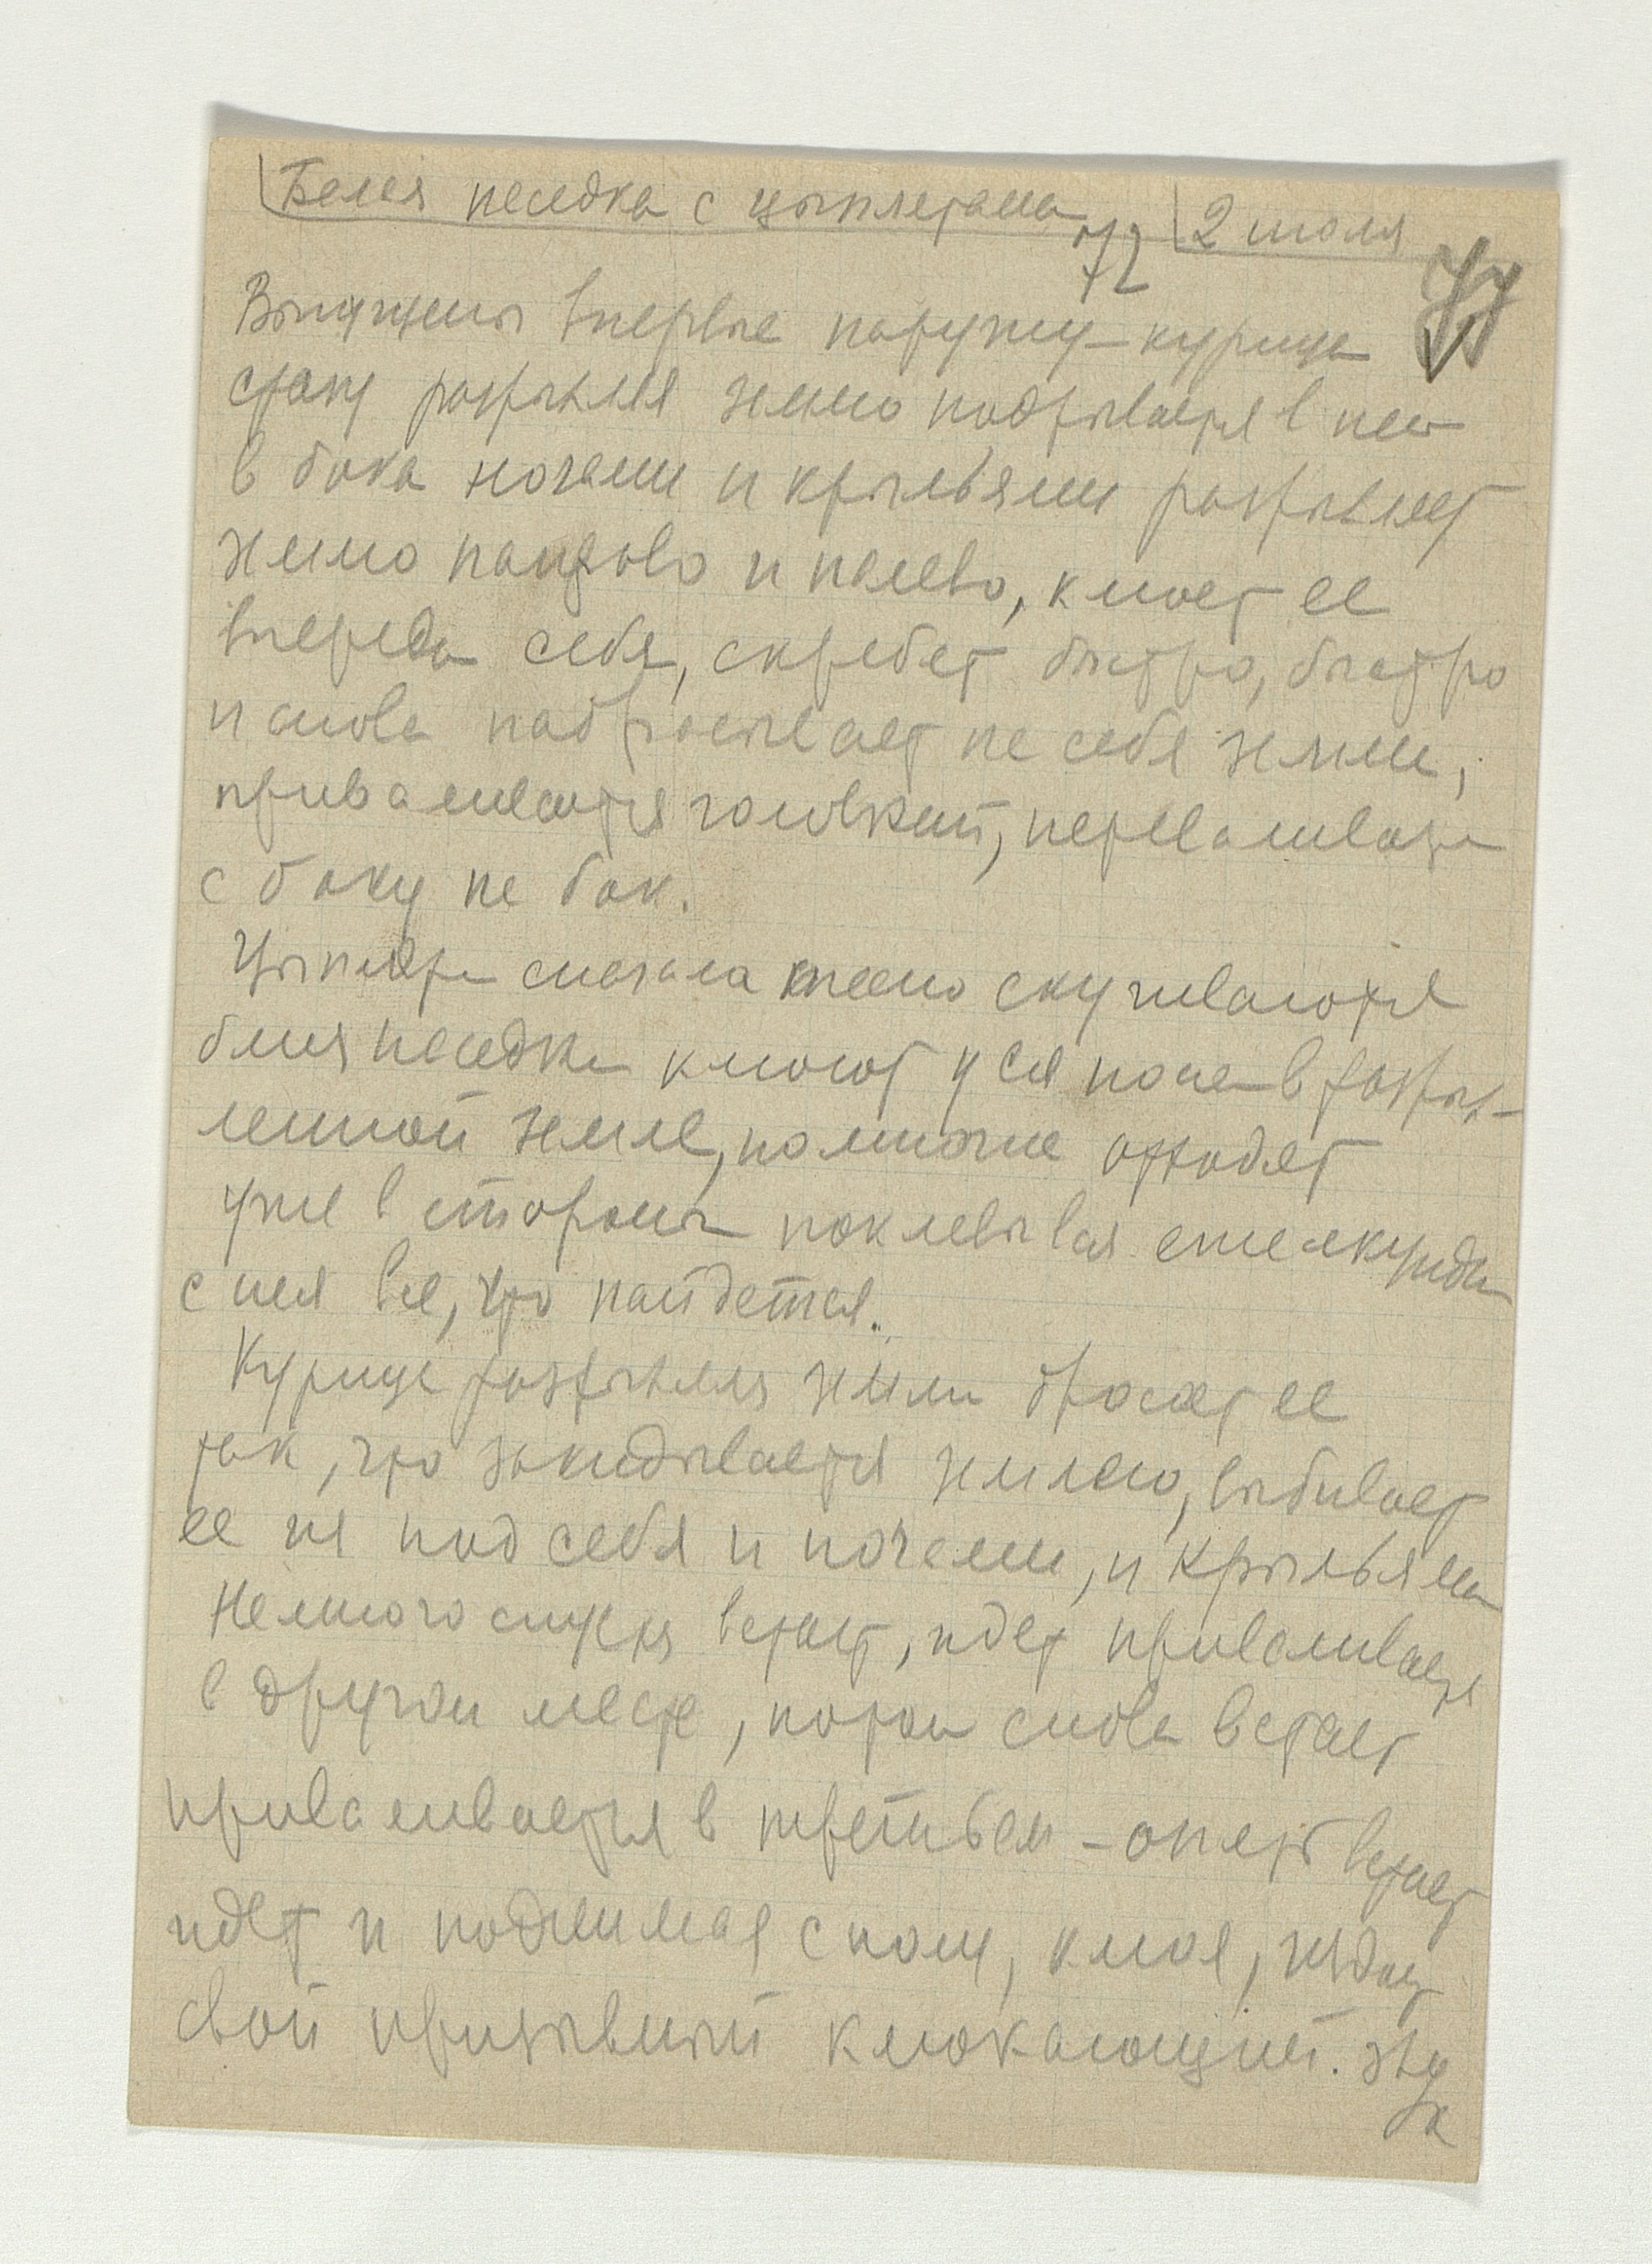 Белая наседка с цыплятами
2 июля
72
77
Выпущены впервые наружу – курица
сразу разрыхляя землю подрывается в нее
в бока ногами и крыльями разрыхляет
землю направо и налево, клюет ее
впереди себя, скребет быстро, быстро
и снова набрасывает на себя земли,
приваливается головкой, переваливаясь
с боку на бок.
Цыплята сначала тесно скучиваются
близ наседки клюют у ея ног в разрых-
ленной земле, но многие отходят
уже в стороны поклевывая ежесекундно
с нея все, что найдется.
Курица разрыхляя земли бросает ее
так, что закидывается землею, выбивает
ее из под себя и ногами, и крыльями
Немного спустя встает, идет приваливается
в другом месте, потом снова встает
приваливается в третьем – опять встает
идет и поднимая с полу, клюя, издает
свой призывный клюкающий звук